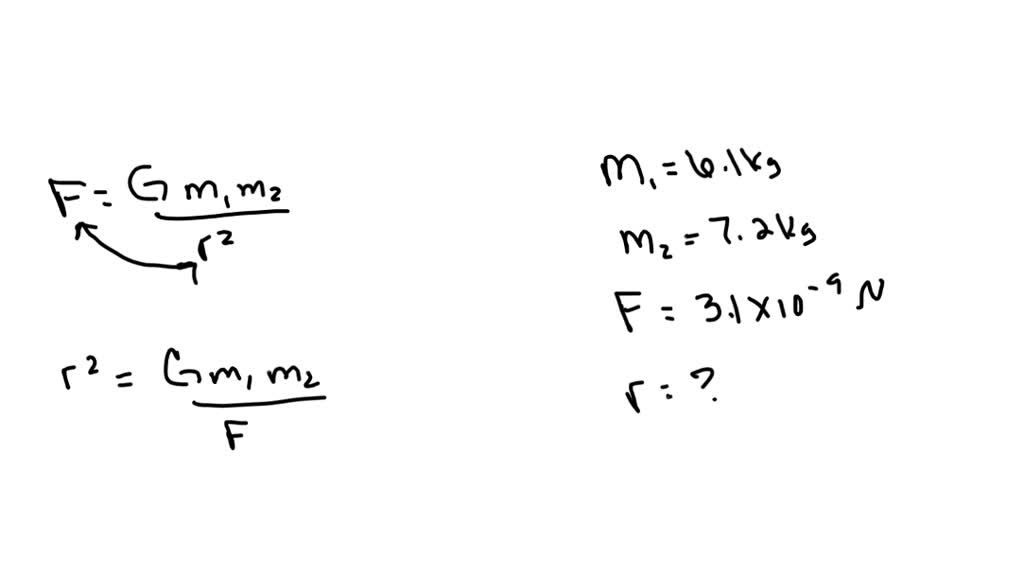 F = G m₁ m₂
r²
r² = G m₁ m₂
F
m₁ = 6.1 kg
m₂ = 7.2 kg
F = 3.1 × 10⁻⁹ N
r = ?